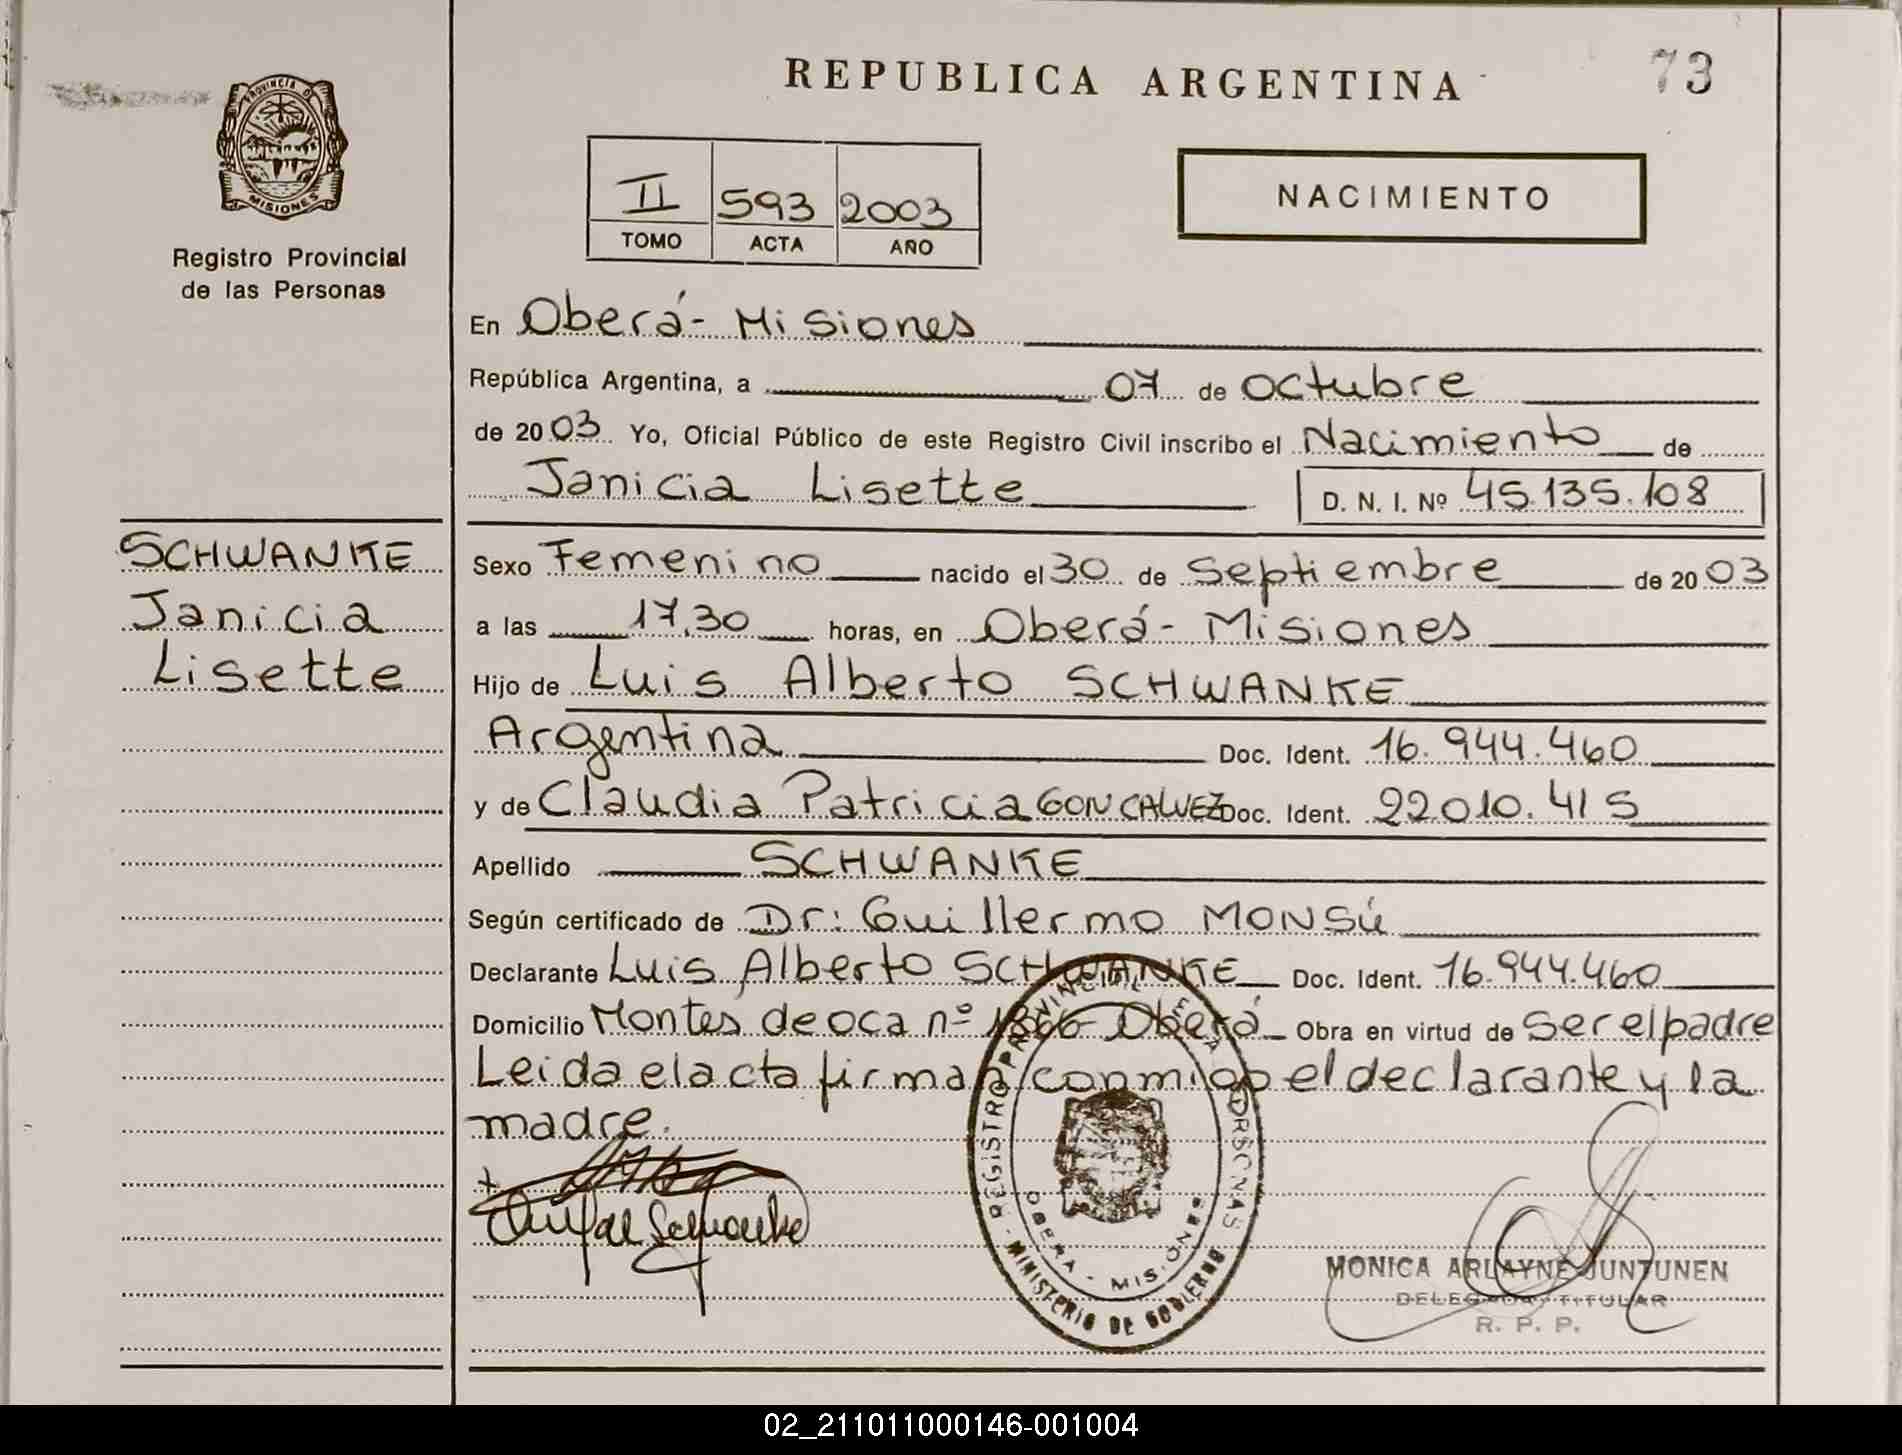 REPUBLICA ARGENTINA
73
PROVINCIA D
MISIONES
Registro Provincial
de las Personas
II 593 2003
TOMO ACTA AÑO
NACIMIENTO
En Oberá - Misiones
República Argentina, a 07 de octubre
de 2003 Yo, Oficial Público de este Registro Civil inscribo el Nacimiento de
Janicia Lisette D. N. I. Nº 45.135.108
SCHWANKE
Janicia
Lisette
Sexo Femenino nacido el 30 de Septiembre de 2003
a las 17,30 horas, en Oberá - Misiones
Hijo de Luis Alberto SCHWANKE
Argentina Doc. Ident. 16.944.460
y de Claudia Patricia GONCALVEZ Doc. Ident. 22.010.415
Apellido SCHWANKE
Según certificado de Dr: Guillermo MONSÚ
Declarante Luis Alberto SCHWANKE Doc. Ident. 16.944.460
Domicilio Montes de oca nº 1366 - Oberá Obra en virtud de Ser el padre
Leida el acta firman conmigo el declarante y la
madre.
REGISTRO PROVINCIAL DE LAS PERSONAS
OBERA - MISIONES
MINISTERIO DE GOBIERNO
MONICA ARLAYNE JUNTUNEN
DELEGADA TITULAR
R. P. P.
02_211011000146-001004